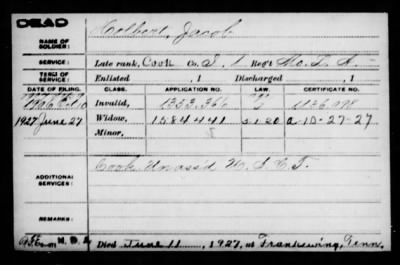 DEAD
NAME OF SOLDIER: Holbert, Jacob
SERVICE: Late rank, Cook Co. I, 1 Reg't Mo. L. A.
TERM OF SERVICE: Enlisted , 1 Discharged , 1
DATE OF FILING. CLASS. APPLICATION NO. LAW. CERTIFICATE NO.
Invalid, 1353,366
1927 June 27 Widow, 1584441 5-1-20 a-10-27-27
Minor,
ADDITIONAL SERVICES: Cook Unass'd U. S. C. T.
Died June 11, 1927, at Frankewing, Tenn.